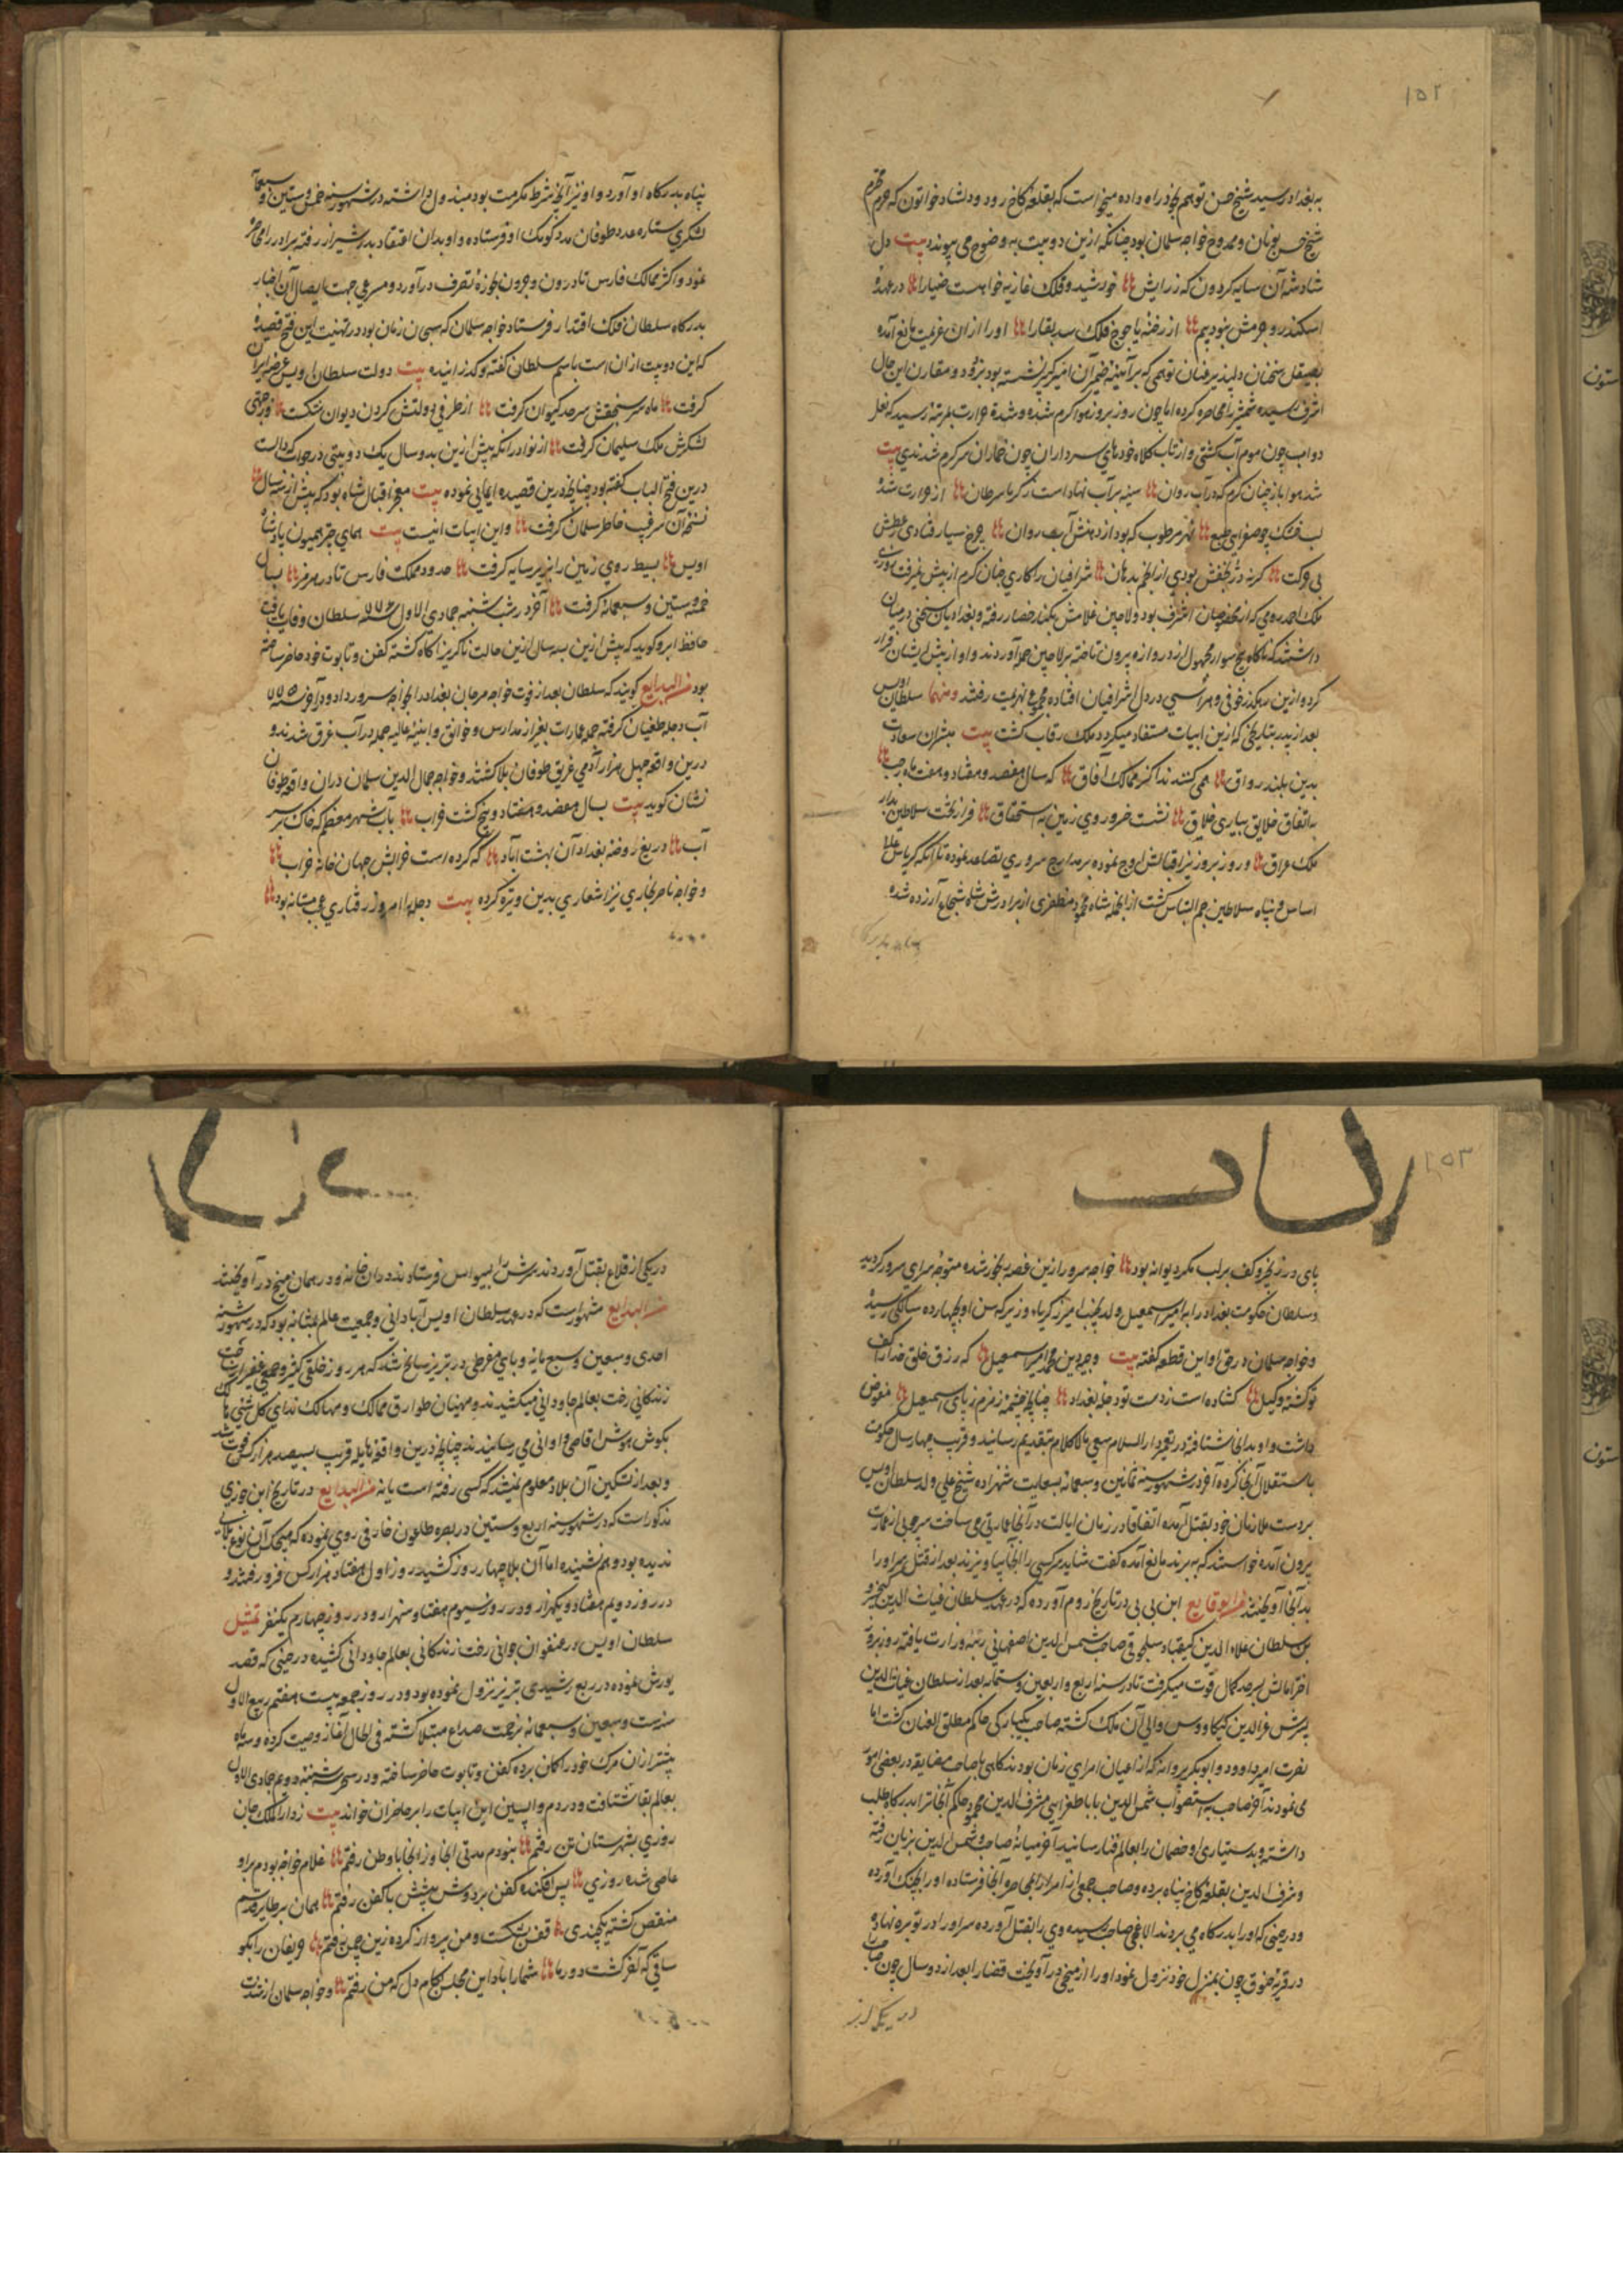 ۱۵۲
به بغداد رسید شیخ حسن توهم بخود راه داده میخواست که بقلعه کاخ رود و دلشاد خواتون که حرم محترم
شیخ حسن نویان و ممدوح خواجه سلمان بود چنانکه ازین دو بیت به وضوح می پیوندد بیت دل
شاد شه آن سایه کردون که ز رایش خورشید و فلک عاریه خواهست ضیا را در عهد
اسکندر و جم مش نبودیم از رخنه یاجوج فلک سد بقا را او را از ان عزیمت مانع آمده
بصیقل سخنان دلپذیر توهمی که بر آیینه ضمیر آن امیر کبیر نشسته بود بزدود و مقارن این حال
اشرف رسیده شهر را محاصره کرده اما چون روز بروز هوا کرم شده و شدة حرارت بمرتبه رسید که نعل
دواب چون موم آب کشتی و از تاب کلاه خودهای سرداران چون خماران سر کرم شدندی بیت
شد هوا باز چنان کرم که در آب روان سینه بر آب نهاد است ز کرما سرطان از حرارت شده
لب خشک چو صفرایی طبع نهر مرطوب که بود از دهنش آب روان چرخ سیار فتادی ز عطش
بی حرکت کرنه در بحفش بودی از انجم بدهان اشرافیان را کاری چنان کرم از پیش نمیرفت روزی
ملک احمد رومی که از مخصوصان اشرف بود و لاچین غلامش بکنار حصار رفته و بغدادیان سخنی درمیان
داشتند که ناکاه پنج سوار مجهول از دروازه بیرون تاخته بر لاچین حمله آوردند و او از پیش ایشان فرار
کرد و ازین رهکذر خوفی و هراسی در دل اشرافیان افتاده مجموع بهزیمت رفتند و منها سلطان اویس
بعد از پدر بتاریخی که ازین ابیات مستفاد میکردد ملک رقاب کشت بیت مبشران سعادت
بدین بلند رواق همی کنند ندا کز ممالک آفاق که سال هفصد و هفتاد و هفت ماه رجب
به اتفاق خلایق بیاری خلاق نشست خسرو روی زمین به استحقاق فراز تخت سلاطین بدار
ملک عراق و روز بروز نیر اقبالش اوج نموده بر مدارج سروری تصاعد نموده تا آنکه کریاس علیا
اساس و پناه سلاطین جم التباس کشت از آنجمله شاه محمود مظفری از برادرش شاه شجاع آزرده شده
پناه بدرکاه
پناه بدرکاه او آورد و او نیز آنچه شرط مکرمت بود مبذول داشته در شهور سنه خمس و ستین و سبعمایه
لشکری ستاره عدد طوفان مدد کومک او فرستاده و او بدان اعتقاد بدر شیراز رفته برادر را محاصره
نمود و اکثر ممالک فارس تا درون و جرون بحوزه تصرف درآورد و مسرعی جهت ایصال آن اخبار
بدرکاه سلطان فلک اقتدار فرستاد خواجه سلمان که سحبان زمان بود در تهنیت این فتح قصیدهٔ
که این دو بیت از ان است باسم سلطان کفته و کذرانیده بیت دولت سلطان اویس عرصه ایران
کرفت ماه سر سنجقش سرحد کیوان کرفت از طرفی دولتش کردن دیوان شکست وز جهتی
لشکرش ملک سلیمان کرفت از نوادر آنکه پیش ازین بدو سال یک دو بیتی در خواب که دالت
درین فتح الباب کفته بود چنانچه درین قصیده ایمایی نموده بیت معجز اقبال شاه بود که پیش از سه سال
نسخه آن سر غیب خاطر سلمان کرفت و این ابیات اینست بیت همای چتر همیون پادشاه
اویس بسیط روی زمین را بزیر سایه کرفت حدود مملکت فارس تا در هرمز بسال
خمسه و ستین و سبعمائه کرفت آخر در شب شنبه جمادی الاول سنه ۷۷۶ سلطان وفات یافت
حافظ ابرو کوید که پیش ازین بسه سال ازین حالت ناکزیر آکاه کشته کفن و تابوت خود حاضر ساخته
بود من البدایع کویند که سلطان بعد از فوت خواجه مرجان بغداد را بخواجه سرور داد و در آخر سنه ۷۷۵
آب دجله طغیان کرفته جمله عمارات بغیر از مدارس و خوانق و ابنیهٔ عالیه جمله در آب غرق شدند و
درین واقعه چهل هزار آدمی غریق طوفان بلا کشتند و خواجه جمال الدین سلمان دران واقعه طوفان
نشان کوید بیت بسال هفصد و هفتاد و پنج کشت خراب بآب شهر معظم که خاک بر سر
آب دریغ روضه بغداد آن بهشت آباد که کرده است خرابش جهان خانه خراب
و خواجه ناصر بخاری نیز اشعاری بدین وتیره کرده بیت دجله را امروز رفتاری عجب مستانه بود
۱۵۳
پای در زنجیر و کف بر لب مکر دیوانه بود خواجه سرور ازین غصه رنجور شده متوجه سرای سرور کردید
و سلطان حکومت بغداد را به امیر اسمعیل ولد نجیب امیر زکریاء وزیر که سن او بچهارده سالکی رسیده
و خواجه سلمان در حق او این قطعه کفته بیت وجیه دین محمد امیر اسمعیل که رزق خلق خدا را کف
تو کشته وکیل کشاده است ز دست تو دجله بغداد چنانچه چشمه زمزم ز پای اسمعیل مفوض
داشت و او بدانجا شتافته در تعمیر دارالسلام سعی مالاکلام بتقدیم رسانید و قریب چهار سال حکومت
باستقلال آنجا کرده آخر در شهور سنه ثمانین و سبعمائه بسعایت شهزاده شیخ علی ولد سلطان اویس
بر دست ملازمان خود بقتل آمده اتفاقا در زمان ایالت در آنجا عمارتی می ساخت سر چوبی از عمارت
بیرون آمده خواستند که ببرند مانع آمده کفت شاید سر کسی را آنجا بیاویزند بعد از قتل سر او را
بدآنجا آویختند من الوقایع ابن بی بی در تاریخ روم آورده که در عهد سلطان غیاث الدین کیخسرو
بن سلطان علاء الدین کیقباد سلجوقی صاحب شمس الدین اصفهانی رتبه وزارت یافته روز بروز
اختر اقبالش سرحد کمال قوت میکرفت تا در سنه اربع و اربعین و ستمائه بعد از سلطان غیاث الدین
پسرش عز الدین کیکاووس والی آن ملک کشته صاحب یکبارکی حاکم مطلق العنان کشت اما
نصرت امیر داوود و ابوبکر پروانه که از اعیان امرای زمان بودند کاهی با صاحب مضایقه در بعضی امور
می نمودند آخر صاحب به استصواب شمس الدین بابا طغرایی مشرف الدین محمود حاکم آنجا را بدرکاه طلب
داشته و بدستیاری او خصمان را بعالم فنا رسانید آخر میانهٔ صاحب و شمس الدین بزیان رفته
و شرف الدین بقلعه کاخ پناه برده و صاحب جمعی از امرا را بمحاصره آنجا فرستاده او را بچنک آورده
و در حینی که او را بدرکاه می بردند الاغچی صاحب رسیده وی را بقتل آورده سر او را در توبره نهاده
در قریهٔ خنوق چون بمنزل خود نزول نمود او را از میخی در آویخت قضا را بعد از دو سال چون صاحب
در یکی از
در یکی از قلاع بقتل آوردند سرش را بسیواس فرستادند در ان خانه و در همان میخ در آویختند
من البدایع مشهور است که در عهد سلطان اویس آبادانی و جمعیت عالم بمثابه بود که در شهور سنه
احدی و سبعین و سبع مایه وبایی مفرطی در تبریز سانح شد که هر روز خلقی کثیر و جمعی غفیر رخت
زندکانی رخت بعالم جاودانی میکشیدند و منهیان طوارق ممالک و مهالک ندای کل شئی هالک
بکوش هوش اقاصی و ادانی می رسانیدند چنانچه درین واقعه هایله قریب بسیصد هزار کس فوت شد
و بعد از تسکین آن بلا معلوم نمیشد که کسی رفته است یا نه من البدایع در تاریخ ابن جوزی
مذکور است که در شهور سنه اربع و ستین در بصره طاعون خارفی روی نموده که هیچکس آن نوع بلایی
ندیده بود و هم نشنیده اما آن بلا چهار روز کشید روز اول هفتاد هزار کس فرو رفتند و
در روز دویم هفتاد و یکهزار و در روز سیوم هفتاد و سه هزار و در روز چهارم یکنفر تمثیل
سلطان اویس در عنفوان جوانی رخت زندکانی بعالم جاودانی کشیده در حینی که قصد
یورش نموده در ربع رشیدی تبریز نزول نموده بود و در روز جمعه بیست هفتم ربیع الاول
سنه ست و سبعین و سبعمائه بزحمت صداع مبتلا کشته فی الحال آغاز وصیت کرده و سه ماه
پیشتر از ان مرک خود را کمان برده کفن و تابوت حاضر ساخته و در سحر شنبه دوم جمادی الاول
بعالم بقا شتافت و در دم واپسین این ابیات را بر حاضران خواند بیت ز دار الملک جان
روزی بشهرستان تن رفتم نبودم مدتی اینجا وز اینجا با وطن رفتم غلام خواجه بودم بر او
عاصی شده روزی پس افکنده کفن بر دوش پیشش با کفن رفتم همان بر طایر قدسم
منقص کشته یکچندی قفس بشکست و من پرواز کرده زین چمن رفتم حریفان را بکو
ساقی که آخر کشت دور ما شما را باد این مجلس بکام دل که من رفتم و خواجه سلمان از شدت